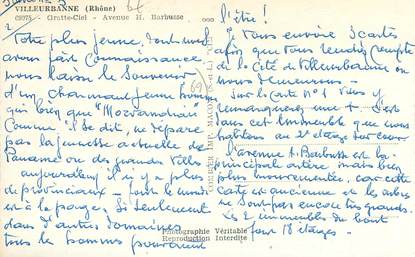 VILLEURBANNE (Rhône)
69075 - Gratte-Ciel - Avenue H. Barbusse
2
Votre plus jeune, dont nous
avons fait connaissance,
nous laisse le Souvenir
d'un charmant jeune homme
qui bien que "Morvandiau"
Comme il se dit, ne dépare
pas la jeunesse actuelle de
Paname ou des grandes villes
aujourd'hui, il n'y a plus
de provinciaux - tout le monde
est à la page. Si seulement
dans d'autres domaines
tous les hommes pouvaient
l'être !
Nous envoie 3 cartes
afin que vous rendiez compte
de la Cité de Villeurbanne où
nous demeurons -
Sur la carte N° 1 Vous y
remarquerez une + C'est
dans cet immeuble que nous
habitons au étage sur
l'avenue H. Barbusse est la
principale artère mais bien
plus mouvementée, car cette
carte est ancienne et les arbres
ne sont pas encore très grands.
Les 2 immeubles du bout
font 18 étages -
69
COMBIER IMP. MACON
Photographie Véritable
Reproduction Interdite